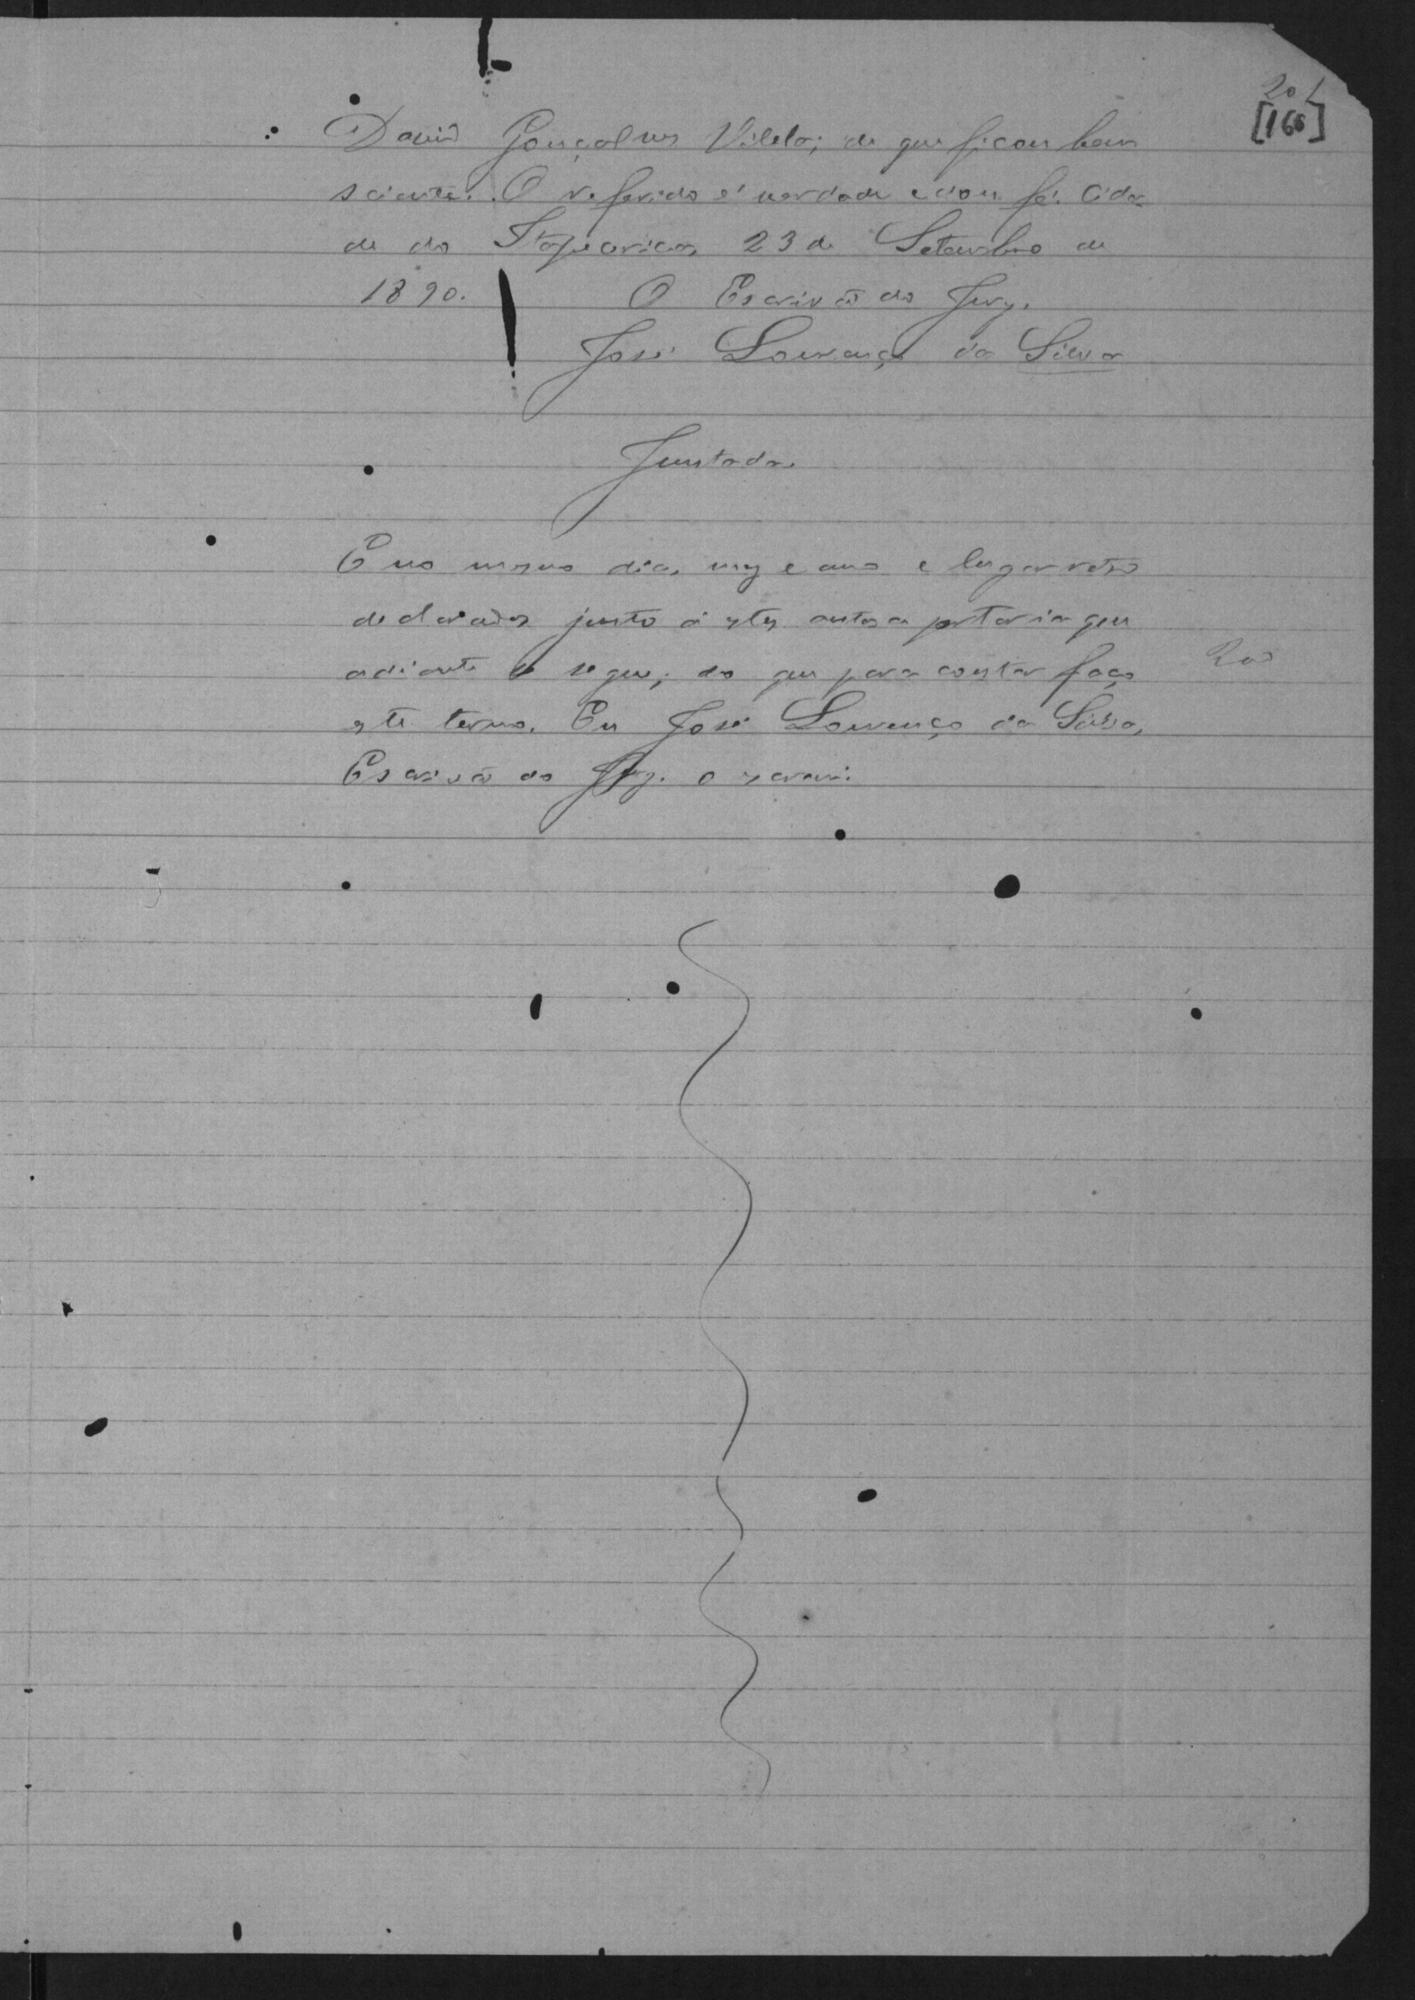 201
[166]
David Gonçalves Vilela; de que ficou bem
sciente. O referido é verdade e dou fé. Cida-
de do Itapecerica, 23 de Setembro de
1890. O Escrivão do Jury.
José Lourenço da Silva
Juntada.
E no mesmo dia, mez e anno e lugar retro
declarados junto á estes autos a portaria que
adiante se segue; do que para constar faço
este termo. Eu José Lourenço da Silva,
Escrivão do Jury. o escrevi.
200